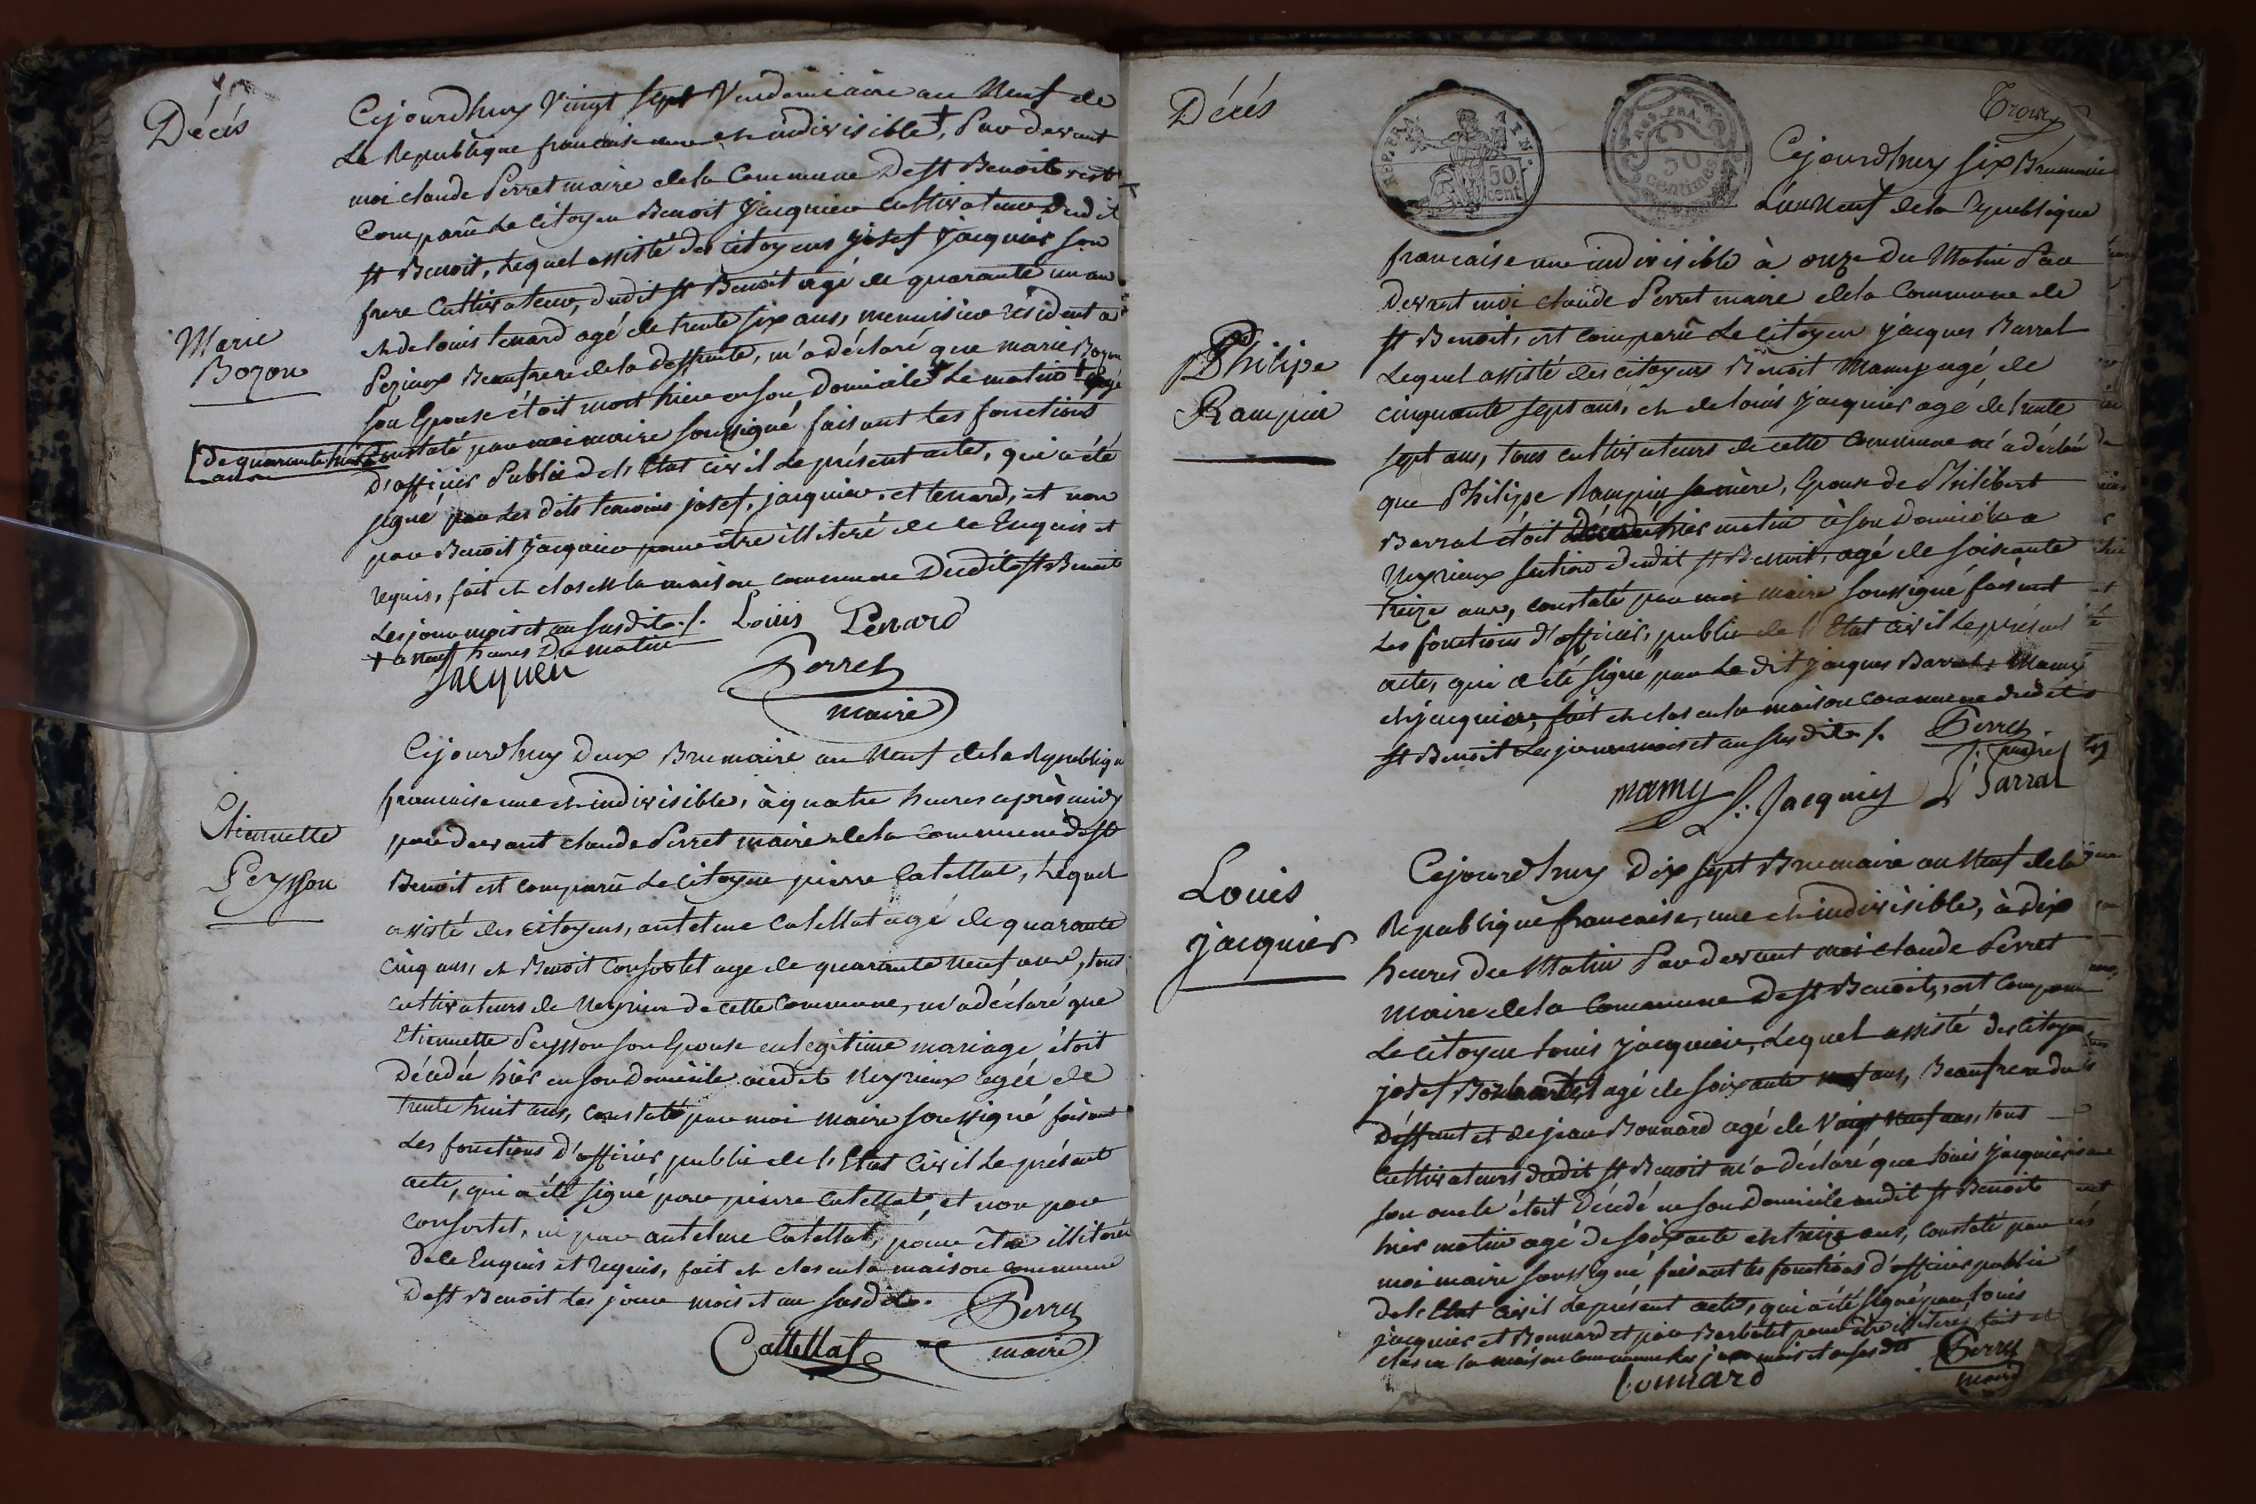 Décès
Cejourdhuy Vingt sept Vendemiaire an Neuf de
La Republique francaise une et indivisible †, Par devant
moi claude Perret maire de la Commune De st Benoit est
Comparu Le Citoyen Benoit Jacquier cultivateur Dudit
st Benoit, Lequel assisté des Citoyens Josef Jacquier son
frere Cultivateur, dudit st Benoit agé de quarante un an
et de Louis tenard agé de trente six ans, menuisier résident a
Pezieux Beaufrere de la deffunte, m'a déclaré que marie Bozon
Marie
Bozon
son Epouse étoit mort hier en son domicile Le matin † agé
de quarante huit
ans
Constaté par moi maire soussigné faisant les fonctions
D'officier Public de l'Etat civil Le présent acte, qui a été
signé par Les dits temoins josef, jacquier. et tenard, et non
par Benoit Jacquier pour être illiteré de le Enquis et
requis, fait et clos en la maison commune Dudit st Benoit
Les jour mois et an susdit ./. Louis Penard
† a neuf heures Du matin
Jacquer
Perret
maire
Cejourdhuy Deux Brumaire an Neuf de la Republique
francaise une et indivisible, à quatre heures après midy
par devant claude Perret maire de la commune de st
Etiennette
Peysson
Benoit est comparu Le Citoyen pierre Catellat, Lequel
assisté des citoyens, antelme Catellat agé de quarante
Cinq ans, et Benoit Confortet age de quarante neuf ans, tous
cultivateurs de Neyrieu de cette Commune, m'a déclaré que
Etiennette Peysson son Epouse en legitime mariage, étoit
Décédée hier en son domicile audit Neyrieux agée de
trente huit ans, Constaté par moi maire soussigné faisant
Les fonctions D'officier public de l'Etat Civil Le présent
acte, qui a été signé par pierre Catellat, et non par
Confortet, ni par antelme Catellat, pour être illiteré
de le Enquis et Requis, fait et clos en la maison commune
De st Benoit Les jour mois et an susdit.
Perret
Cattellat
maire
Décès
REP. FRA.
50
cent
REP. FRA.
50
centimes
Trois
Cejourdhuy six Brumaire
L'an Neuf de la Republique
francaise une indivisible à onze Du Matin Par
Devant moi Claude Perret maire de la Commune de
st Benoit, est comparu Le Citoyen Jacques Barral
Philipe
Rampin
Lequel assisté des citoyens Benoit Mamy agé de
cinquante sept ans, et de Louis Jacquier age de trente
sept ans, tous cultivateurs de cette Commune m'a déclaré
que Philippe Rampin sa mère, Epouse de Philibert
Barral étoit décédée hier matin à son Domicile a
Neyrieux section dudit st Benoit, agé de soixante
treize ans, constaté par moi maire soussigné faisant
Les fonctions d'officier, public de l'Etat Civil Le présent
acte, qui a été signé par Le dit Jacques Barral, Mamy
et jacquier, fait et clos en la maison commune dudit
st Benoit Les jour mois et an susdit ./. Perret
maire
mamy L: Jacquier J Barral
Louis
jacquier
Cejourdhuy Dix sept Brumaire an Neuf de la
Republique francaise, une et indivisible, à dix
heures du Matin Par devant moi claude Perret
Maire de la Commune De st Benoit, est comparu
Le Citoyen Louis Jacquier, Lequel assisté des citoyens
josef agé de soixante ans, Beaufrere du
Deffunt et de jean Bonnard agé de Vingt Neuf ans, tous
Cultivateurs dudit st Benoit m'a déclaré que Louis Jacquier
son oncle étoit Décédé en son Domicile audit st Benoit
hier matin agé de soixante et treize ans, Constaté par
moi maire soussigné faisant les fonctions d'officier public
De l'Etat Civil Le présent acte, qui a été signé par Louis
jacquier et Bonnard et par Barbolet pour être illiteré, fait et
clos en la maison Commune Les jour mois et an susdits
Perret
maire
bonnard